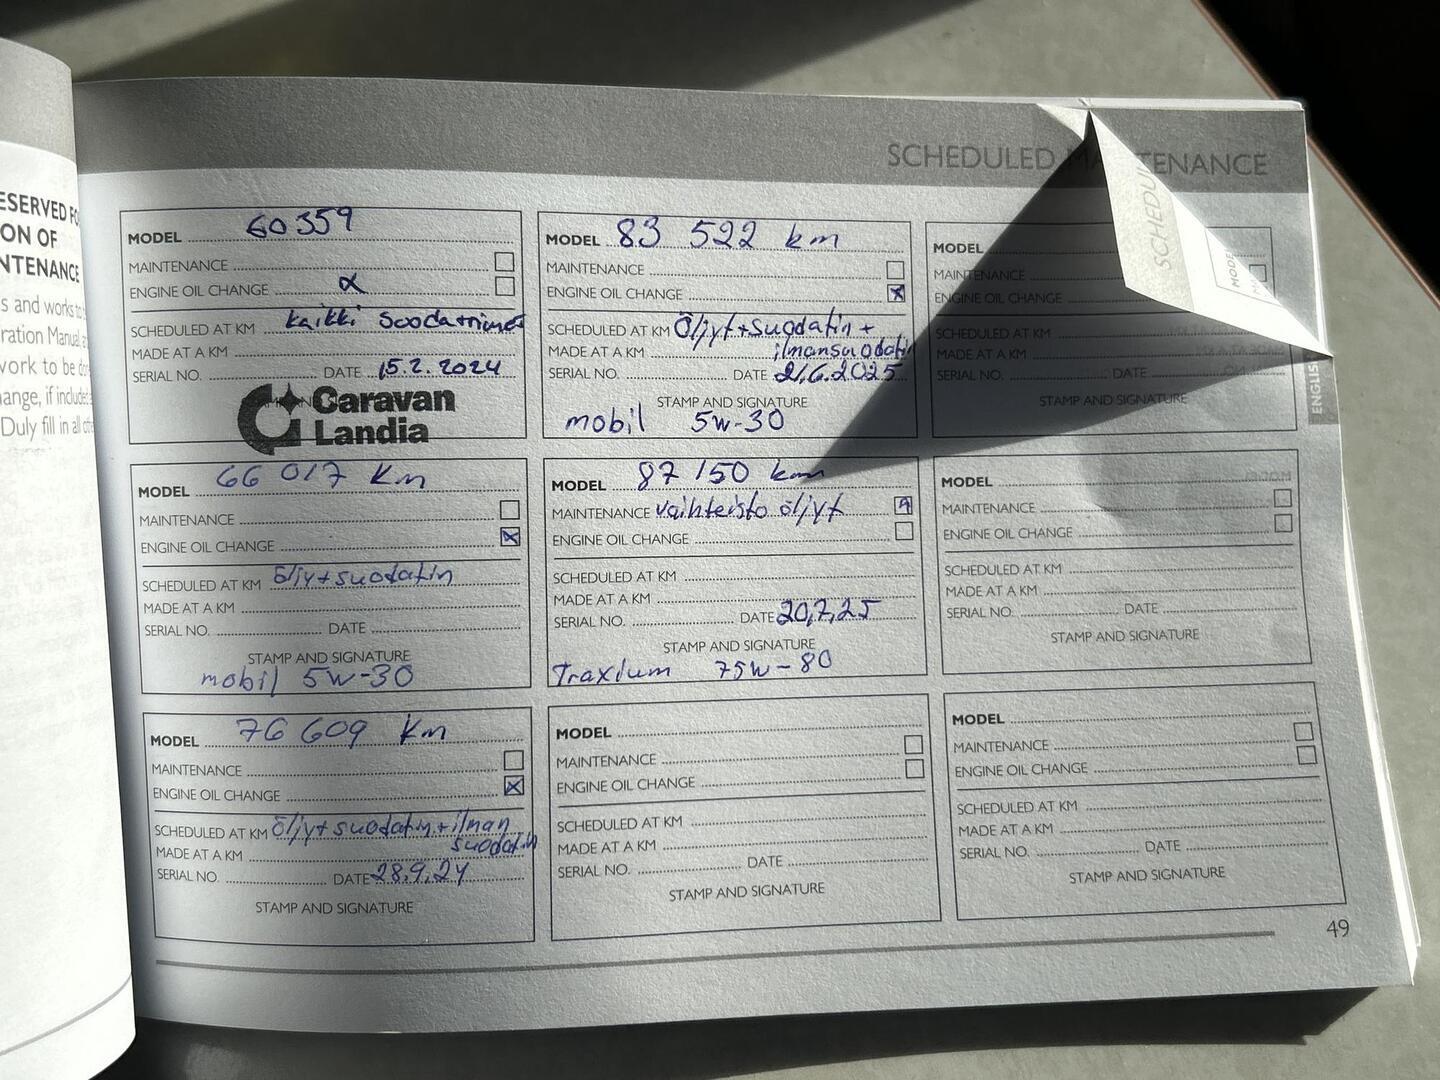 ESERVED FO
ON OF
NTENANCE
s and works to
ration Manual
work to be
ange, if included
Duly fill in all
SCHEDULED MAINTENANCE
MODEL 60359
MAINTENANCE
ENGINE OIL CHANGE
SCHEDULED AT KM kaikki suodattimet
MADE AT A KM
SERIAL NO. DATE 15.2.2024
Caravan
Landia
MODEL 66 017 Km
MAINTENANCE
ENGINE OIL CHANGE x
SCHEDULED AT KM öljy+suodatin
MADE AT A KM
SERIAL NO. DATE
STAMP AND SIGNATURE
mobil 5w-30
MODEL 76 609 Km
MAINTENANCE
ENGINE OIL CHANGE x
SCHEDULED AT KM Öljyt suodatin+ilman
suodatin
MADE AT A KM
SERIAL NO. DATE 28.9.24
STAMP AND SIGNATURE
MODEL 83 522 km
MAINTENANCE
ENGINE OIL CHANGE x
SCHEDULED AT KM Öljyt+suodatin +
MADE AT A KM ilmansuodatin
SERIAL NO. DATE 21.6.2025
STAMP AND SIGNATURE
mobil 5w-30
MODEL 87 150 km
MAINTENANCE vaihteisto öljyt
ENGINE OIL CHANGE
SCHEDULED AT KM
MADE AT A KM
SERIAL NO. DATE 20,7,25
STAMP AND SIGNATURE
Traxium 75w-80
MODEL
MAINTENANCE
ENGINE OIL CHANGE
SCHEDULED AT KM
MADE AT A KM
SERIAL NO. DATE
STAMP AND SIGNATURE
MODEL
MAINTENANCE
ENGINE OIL CHANGE
SCHEDULED AT KM
MADE AT A KM
SERIAL NO. DATE
STAMP AND SIGNATURE
MODEL
MAINTENANCE
ENGINE OIL CHANGE
SCHEDULED AT KM
MADE AT A KM
SERIAL NO. DATE
STAMP AND SIGNATURE
MODEL
MAINTENANCE
ENGINE OIL CHANGE
SCHEDULED AT KM
MADE AT A KM
SERIAL NO. DATE
STAMP AND SIGNATURE
SCHEDU
MODE
ENGLISH
49